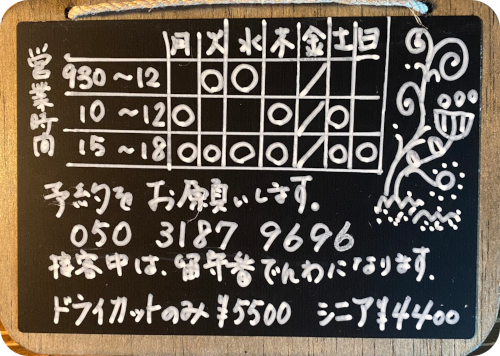 営業時間
月 火 水 木 金 土 日
930 〜12 ○ ○ /
10 〜12 ○ ○ / ○
15 〜18 ○ ○ ○ ○ / ○ ○
予約をお願いします。
050 3187 9696
接客中は、留守番でんわになります。
ドライカットのみ ¥5500 シニア¥4400